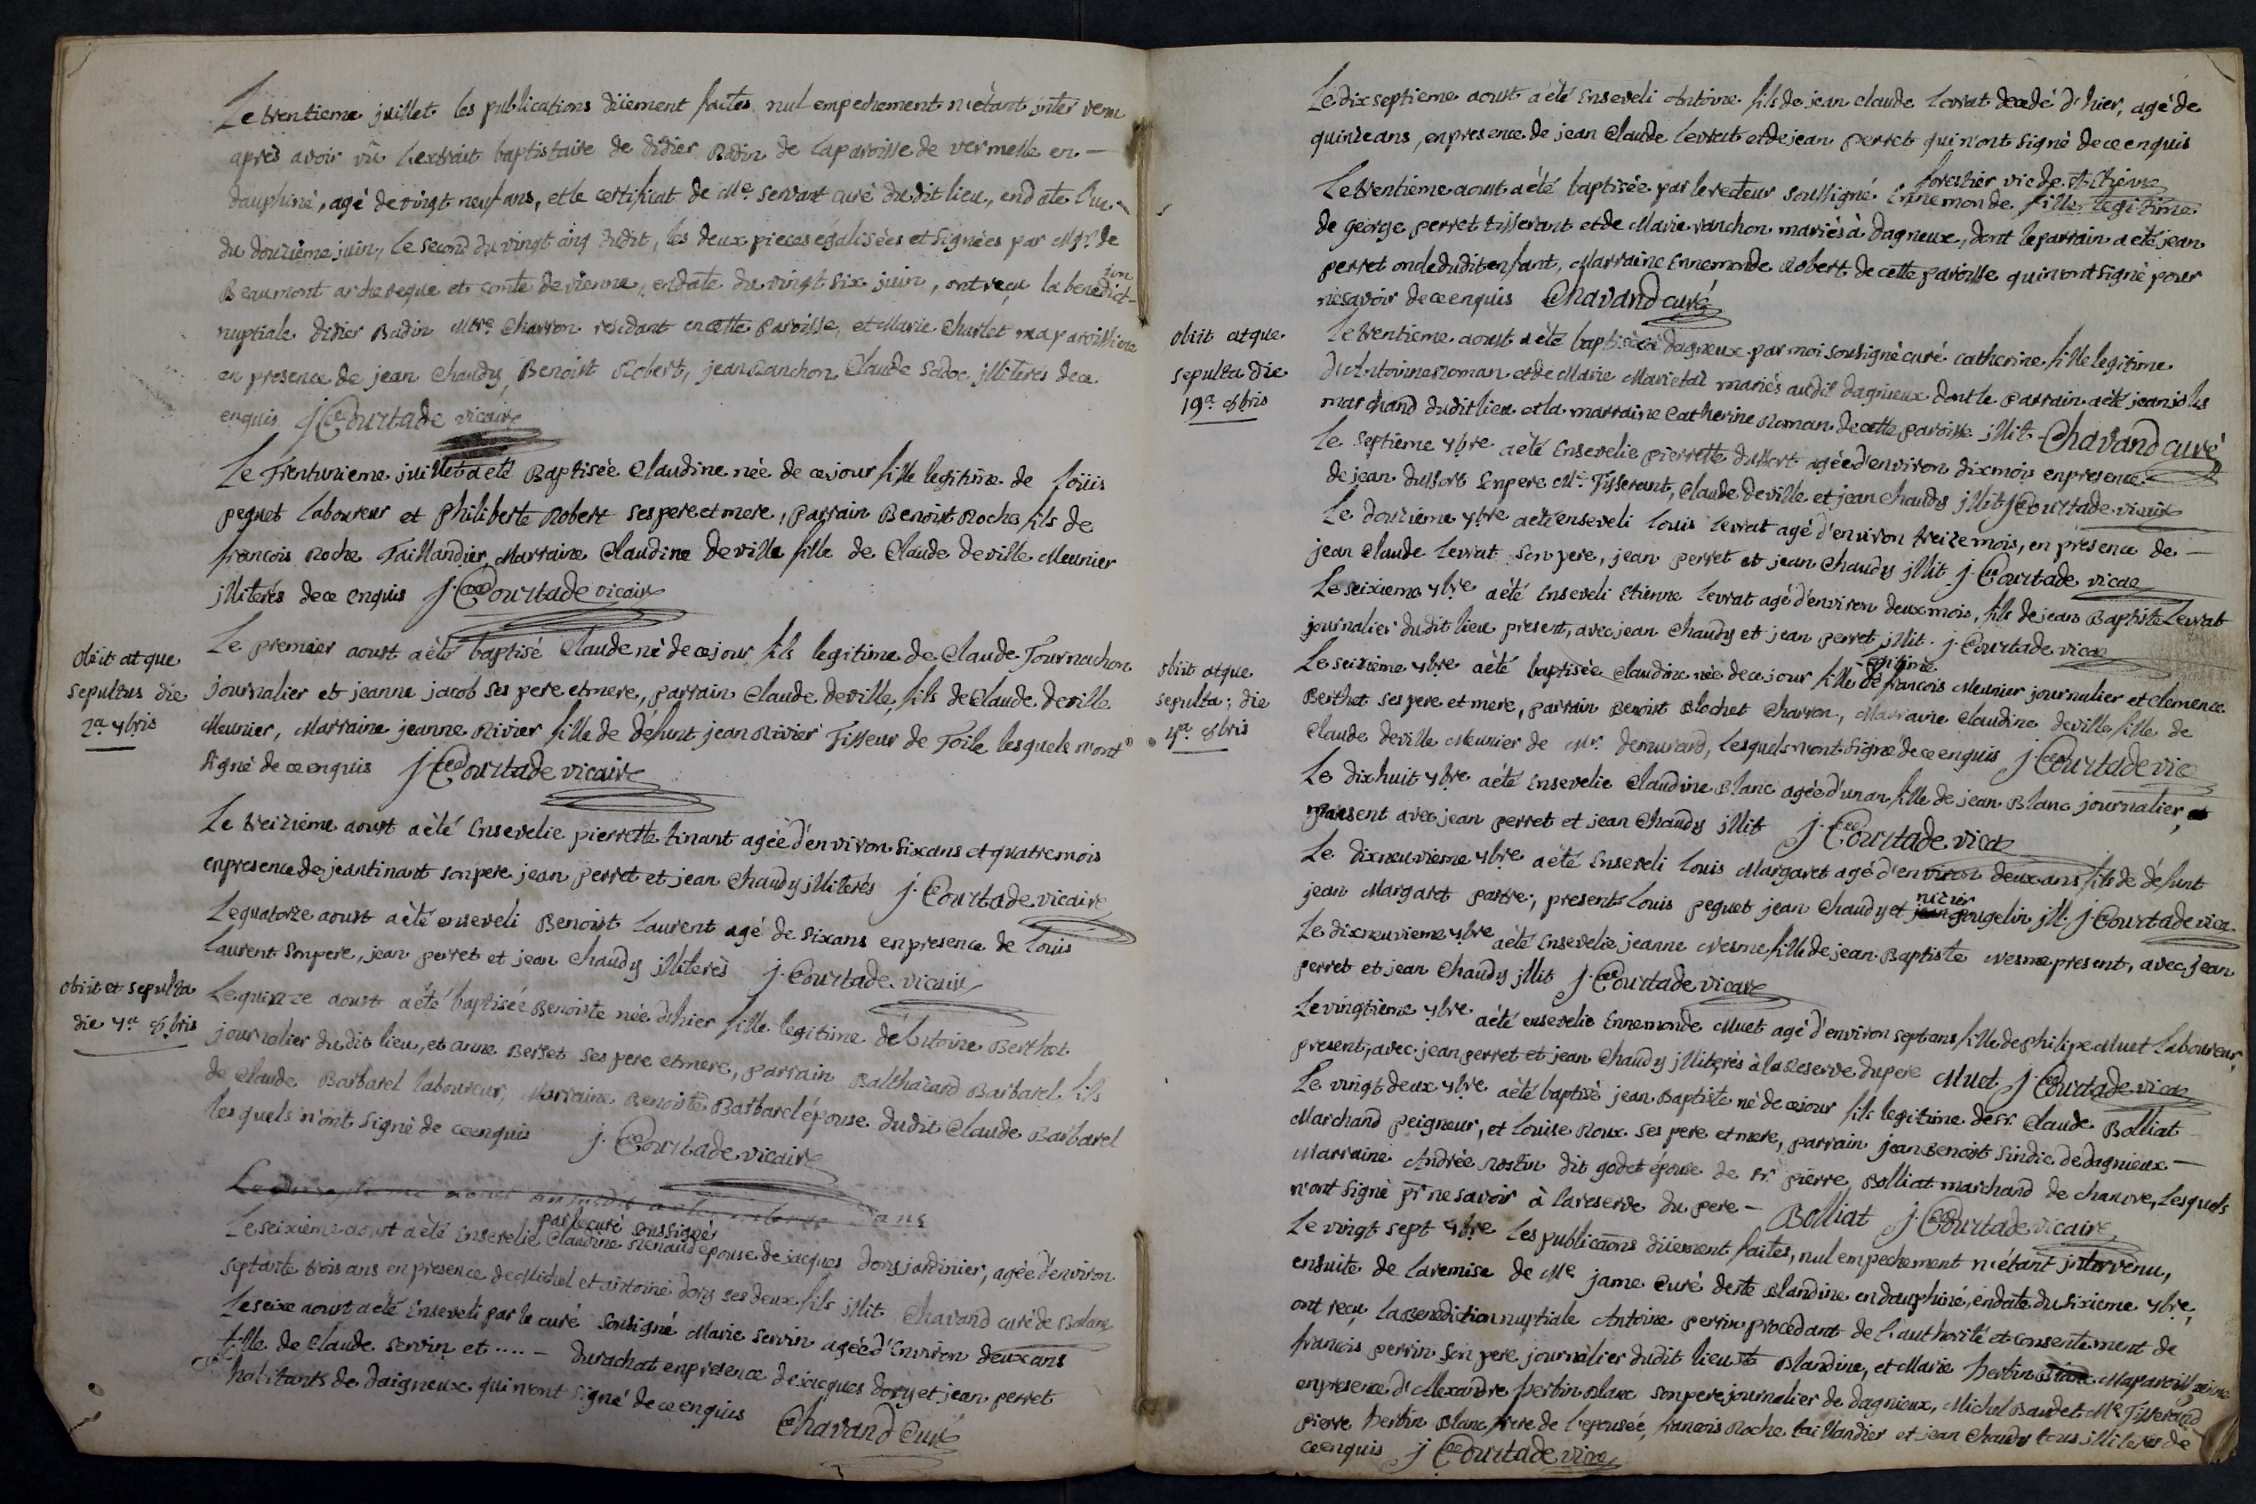 Le trentieme juillet les publications düement faites nul empechement n'etant inter venu
après avoir vû l'extrait baptistaire de didier Badin de la paroisse de vermelle en —
dauphiné, agé de vingt neuf ans, et le certificat de Me. servant curé du dit lieu, en date l'un
du douzième juin, le second du vingt cinq dudit, les deux pieces égalisées et signées par Mgr. de
Beaumont archeveque et comte de vienne, en date du vingt six juin, ont reçu la benedict-ion
nuptiale didier Badin Mtre. Charron residant en cette paroisse, et Marie Charlet ma paroissiene
en presence de jean Chaudy, Benoist Robert, jean Ranchon Claude Sadoc illiterés de ce
enquis J. Courtade vicaire
Le Trentunieme juillet a eté Baptisée Claudine née de ce jour fille legitime de Loüis
peguet Laboureur et Philiberte Robert ses pere et mere, parrain Benoist Roche fils de
francois Roche Taillandier, Marraine Claudine deville fille de Claude deville Meunier
illiterés de ce enquis J. Courtade vicaire
obiit atque
sepultus die
2a 7bris
Le premier aoust a été baptisé Claude né de ce jour fils legitime de Claude Tournachon
journalier et jeanne jacob ses pere et mere, parrain Claude deville, fils de Claude deville
Meunier, Marraine jeanne Rivier fille de défunt jean Rivier Tisseur de Toile lesquels n'ont
signé de ce enquis J. Courtade vicaire
Le treizième aoust a été Ensevelie pierrette tinant agée d'environ six ans et quatre mois
en presence de jean tinant son pere jean perret et jean Chaudy illiterés J. Courtade vicaire
Le quatorze aoust a été enseveli Benoist Laurent agé de six ans en presence de Louis
Laurent son pere, jean perret et jean Chaudy illiterés J. Courtade vicaire
obiit et sepulta
die 4a 8bris
Le quinze aoust a été baptisée Benoiste née d'hier fille legitime de Antoine Berthet
journalier du dit lieu, et anne Berset ses pere et mere, parrain Balthazard Barbarel fils
de Claude Barbarel laboureur, Marraine Benoiste Barbarel épouse dudit Claude Barbarel
les quels n'ont signé de ce enquis J. Courtade vicaire
par le curé soussigné
Le seizième aoust a été Ensevelie Claudine Renaud épouse de jacques dory jardinier, agée d'environ
septante trois ans en presence de Michel et antoine dory ses deux fils illit Chavand curé de Balane
Le seize aoust a été Enseveli par le curé sousigné Marie servin agée d'Environ deux ans
fille de Claude servin et .... — durachat en presence de jacques dory et jean perret
habitants de daigneux qui n'ont signé de ce enquis Chavand Curé
Le dix septieme aoust a été Enseveli Antoine fils de jean claude Levrat decedé d'hier, agé de
quinse ans, en presence de jean Claude Levrat et de jean perret qui n'ont signé de ce enquis
forestier vic de St Etienne
Le trentième aoust a été baptisée par le recteur soussigné Ennemonde fille legitime
de george perret tisserant et de Marie ranchon mariés à dagneux, dont le parrain a été jean
perret oncle dudit enfant, Marraine Ennemonde Robert de cette paroisse qui n'ont signé pour
ne savoir de ce enquis Chavand curé
obiit atque
sepulta die
19a 8bris
Le trentieme aoust a été baptisée à dagneux par moi sousigné curé catherine fille legitime
d'Antoinne Roman et de Marie Marietal mariés audit dagnieux dont le parrain a été jean solis
marchand dudit lieu et la marraine Catherine Roman de cette paroisse illit. Chavand curé
Le septieme 7bre a été Ensevelie pierrette dussort agée d'environ dix mois en presence
de jean dussort son pere Me. Tisserant, Claude deville et jean chaudy illit J Courtade vicaire
Le douzième 7bre a été enseveli Louis Levrat agé d'environ treize mois, en présence de —
jean Claude Levrat son pere, jean perret et jean Chaudy illit J. Courtade vicae
Le seizieme 7bre a été Enseveli Etienne Levrat agé d'environ deux mois, fils de jean Baptiste Levrat
journalier du dit lieu present, avec jean Chaudy et jean perret illit. J. Courtade vicae
obiit atque
sepulta; die
4a 8bris
Le seizième 7bre a été baptisée Claudine née de ce jour fille legitime de francois Meunier journalier et Clemence
Berthet ses pere et mere, parrain Benoist Blochet Charron, Marraine Claudine deville fille de
Claude deville Meunier de Mr. demurard, lesquels n'ont signé de ce enquis J. Courtade vic
Le dix huit 7bre a été Ensevelie Claudine Blanc agée d'un an fille de jean Blanc journalier,
present avec jean perret et jean Chaudy illit J. Courtade vicae
Le dixneuvieme 7bre a été Enseveli Louis Margaret agé d'environ deux ans fils de défunt
jean Margaret patre, present Louis peguet jean Chaudy et nizier gougelin ill. J Courtade vica
Le dixneuvieme 7bre a été Ensevelie jeanne Mesme fille de jean Baptiste Mesme present, avec jean
perret et jean Chaudy illit J. Courtade vicare
Le vingtieme 7bre a été ensevelie Ennemonde Muet agé d'environ sept ans fille de philipe Muet Laboureur,
present, avec jean perret et jean Chaudy illiterés à la Reserve du pere Muet J. Courtade vicae
Le vingt deux 7bre a été baptisé jean Baptiste né de ce jour fils legitime de Sr. Claude Bolliat
Marchand peigneur, et Louise Roux ses pere et mere, parrain jean Benoist Sindic de dagnieux —
Marraine Andrée Rostin dit godet épouse de Sr. pierre Bolliat marchand de chanvre, Lesquels
n'ont signé pr. ne savoir à la reserve du pere — Bolliat J. Courtade vicaire
Le vingt sept 7bre Les publicaons düement faites, nul empechement n'étant intervenu,
ensuite de la remise de Me jame Curé de Ste Blandine en dauphiné, en date du sixieme 7bre,
ont reçu la Benediction nuptiale Antoine perrin procédant de l'authorité et consentement de
francois perrin son pere journalier dudit lieu Ste Blandine, et Marie hertin Maparoissienne
en presence d'Alexandre hertin Blanc son pere journalier de dagnieux, Michel Baudet Me Tisserand
pierre hertin Blanc frere de l'epousée, francois Roche taillandier et jean Chaudy tous illiterés de
ce enquis J. Courtade vicae